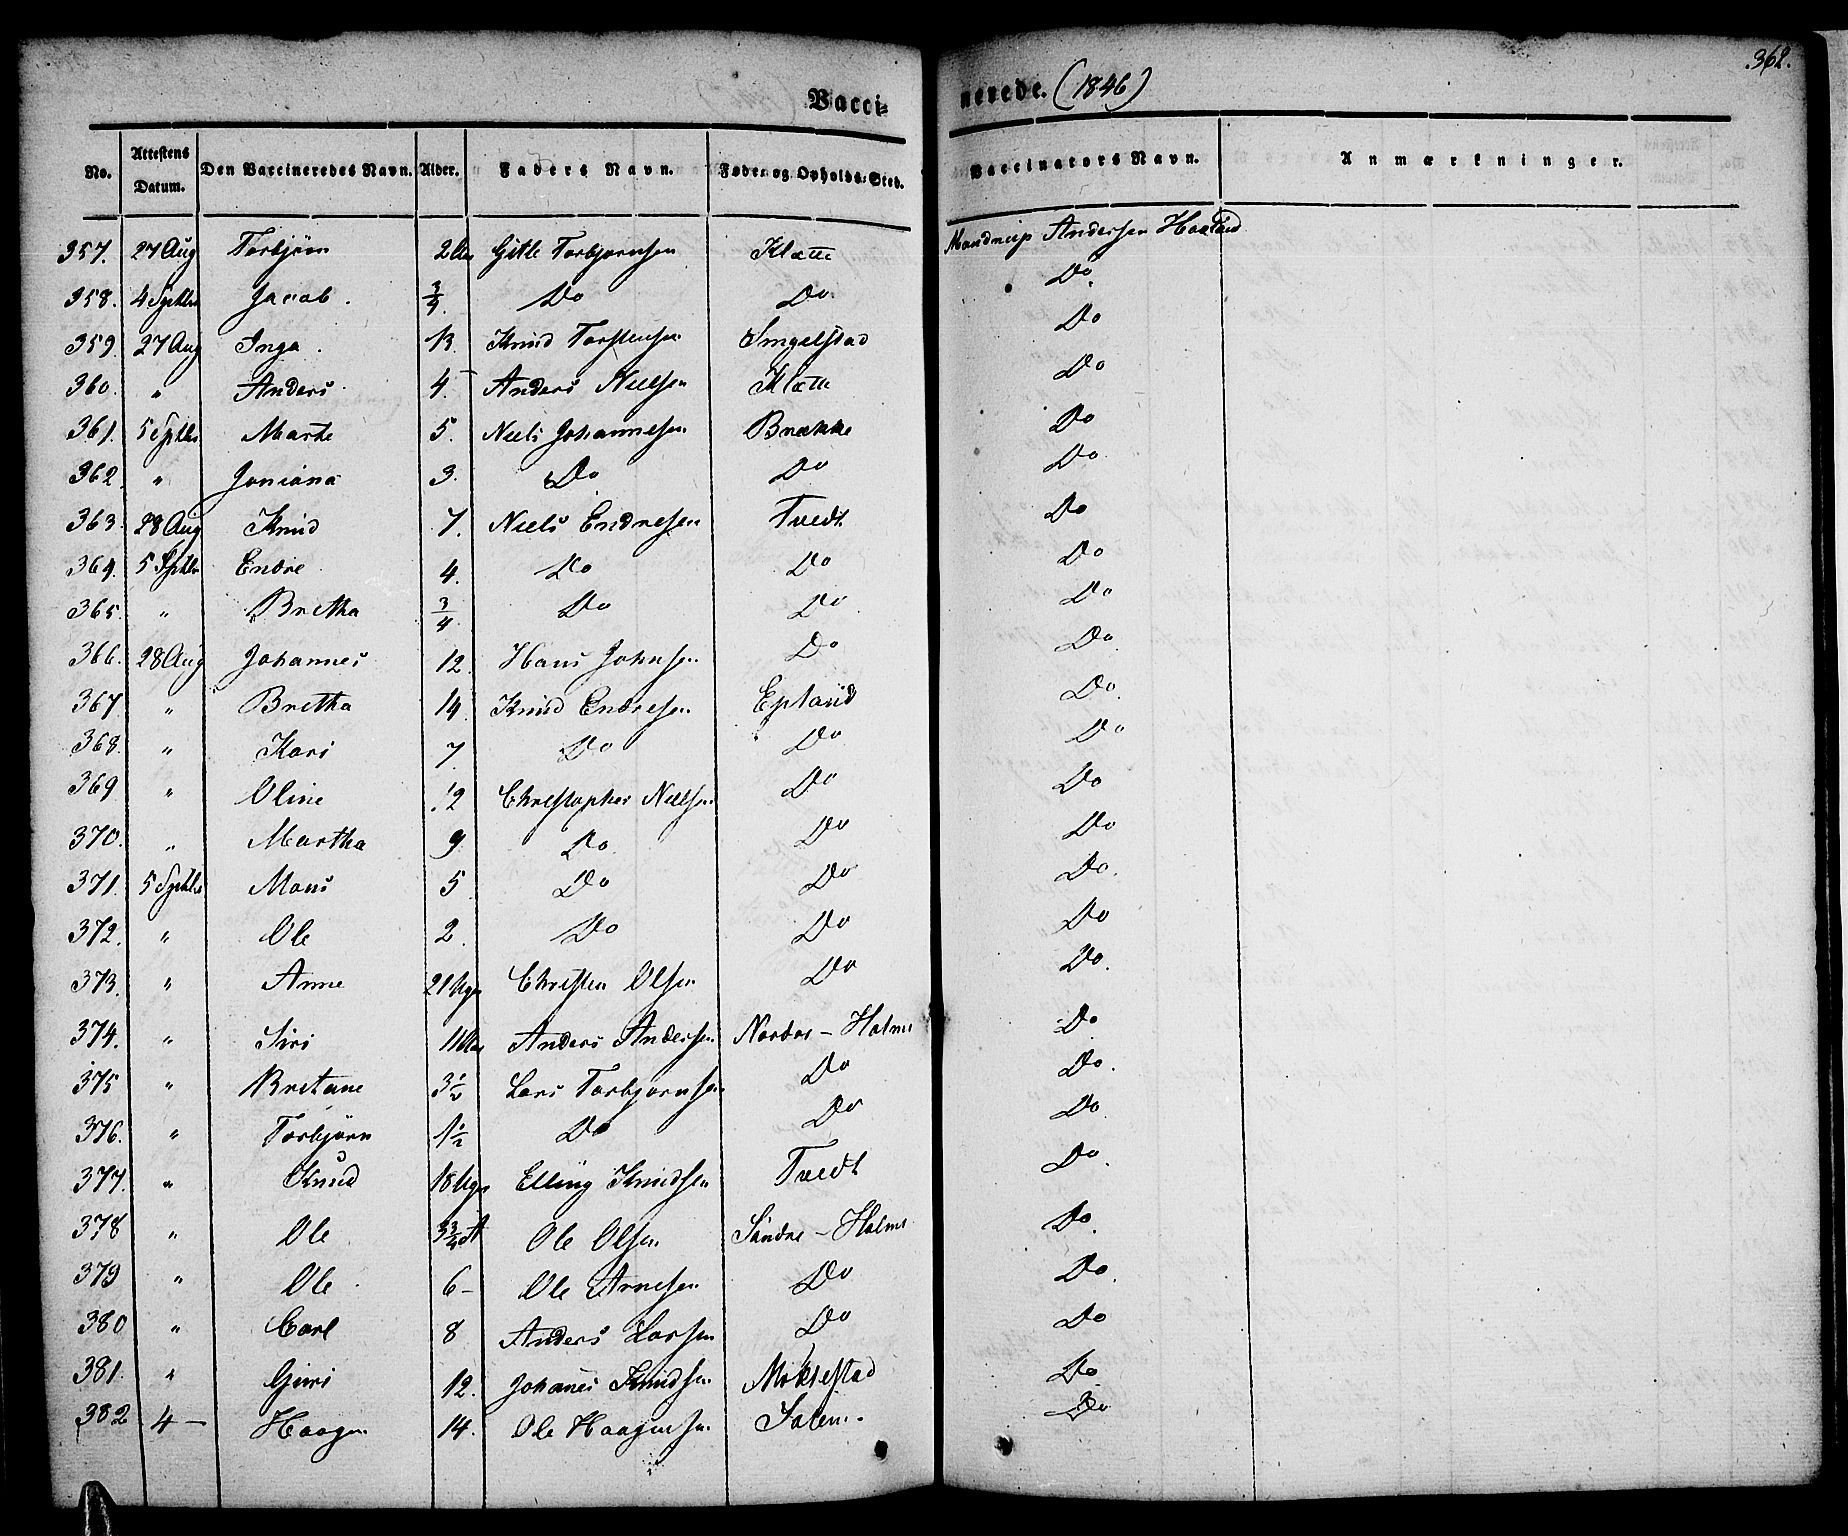 362.
Vaccinerede. (1846)
No. Attestens Datum. Den Vaccineredes Navn. Alder. Faders Navn. Føde- og Opholds-Sted. Vaccinators Navn. Anmærkninger.
357. 27 Aug Torbjörn Gitle Torbjornsen Klætte Mandrup Andersen Haaland
358. 4 Sptbr Jacob. 3/4. Do Do. Do.
359. 27 Aug Inga. 13. Knud Torstensen Singelstad Do
360. " Anders. 4. Anders Nielsen Klætte Do
361. 5 Sptbr Marte 5. Niels Johannesen Brække Do
362. " Joniana 3. Do Do Do.
363. 28 Aug Knud 7. Niels Endresen Tvedt Do
364. 5 Sptbr Endre 4. Do Do Do
365. " Bretha 3/4. Do Do. Do
366. 28 Aug Johannes 12. Hans Johnsen Do Do.
367 " Bretha 14. Knud Endresen Epland Do.
368. " Kari 7. Do Do Do
369 " Oline 12 Christopher Nielsen Do Do
370. " Martha 9. Do. Do Do
371. 5 Sptbr Mons 5. Do Do Do.
372. " Ole 2. Do Do Do
373. " Anne 21 Uger Christen Olsen Do Do.
374. " Siri Anders Andersen Nordre - Holme Do
375 " Bretane 3 1/2 Lars Torbjornsen Do Do.
376. " Torbjørn 1 1/2 Do Do Do.
377. " Knud 18 Uger Elling Knudsen Tvedt Do.
378 " Ole 3 3/4 A Ole Olsen Söndre - Holme Do.
379 " Ole. 6 - Ole Arnesen Do Do.
380 " Carl 8 Anders Larsen Do Do
381. " Guri 12. Johanes Knudsen Moksestad Do
382 4 - Haagen 14. Ole Haagensen Salem. Do